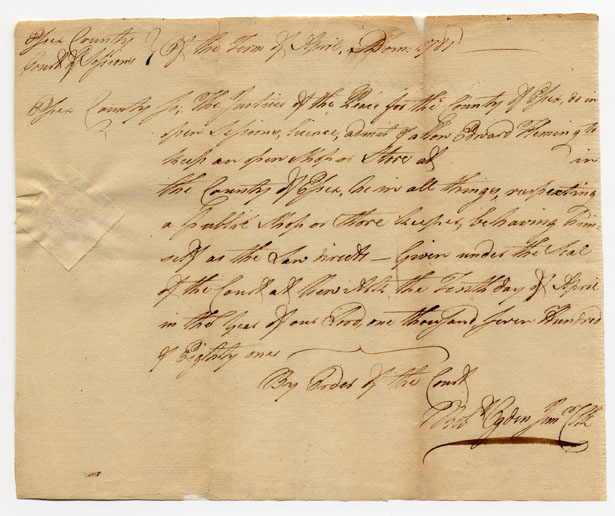 Essex County
Court of Sessions } Of the Term of April, Dom: 1781
Essex County ss, The Justices of the Peace for the County of Essex, do in
open Sessions, licence, admit & allow Edward Fleming to
keep an open Shop or Store at in
the County of Essex, he in all things, respecting
a Public Shop or Store keeper, behaving him-
self as the Law directs — Given under the Seal
of the Court at New Ark the Tenth day of April
in the Year of our Lord, one thousand seven Hundred
& Eighty one
By Order of the Court
Rob Ogden Junr Clk